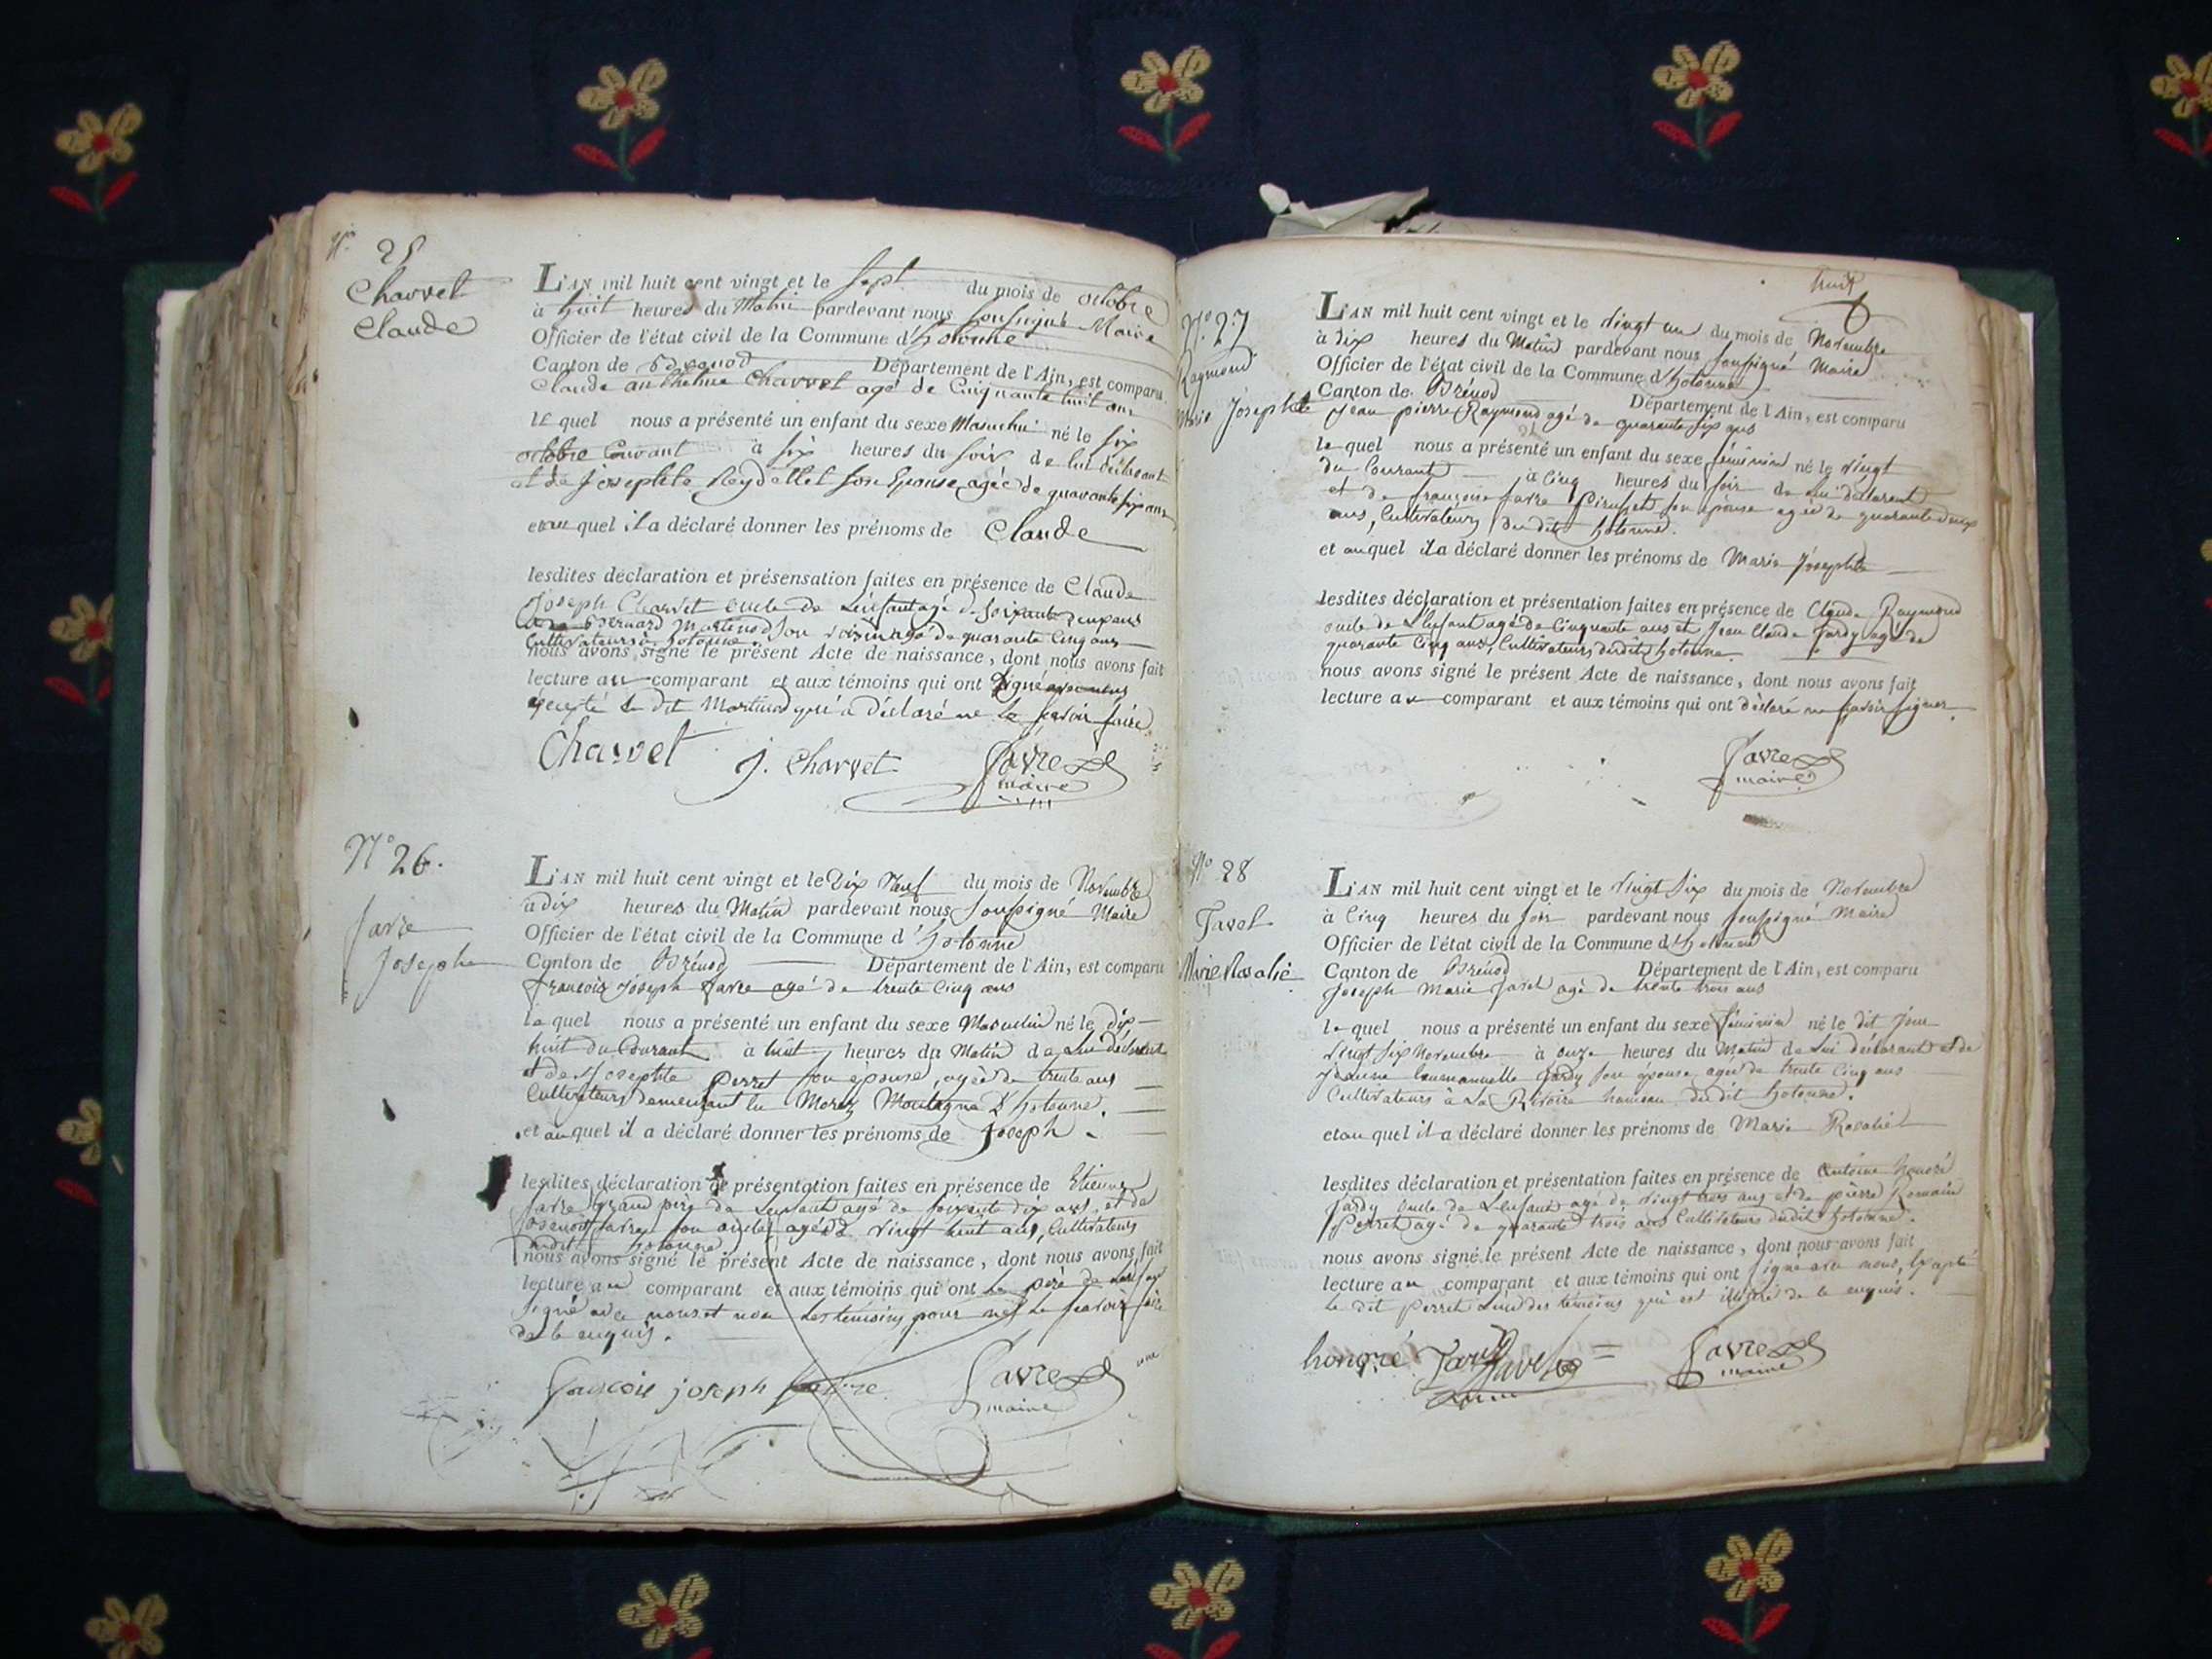 N.o 25
Charvet
Claude
L'AN mil huit cent vingt et le sept du mois de octobre
à huit heures du Matin pardevant nous soussigné Maire
Officier de l'état civil de la Commune d'hotonne
Canton de Brenod Département de l'Ain, est comparu
Claude anthelme Charvet agé de Cinquante huit ans
le quel nous a présenté un enfant du sexe Masculin né le six
octobre Courant à six heures du soir de lui déclarant
et de Josephte Reydellet son Epouse agée de quarante six ans
et au quel il a déclaré donner les prénoms de Claude
lesdites déclaration et présensation faites en présence de Claude
Joseph Charvet oncle de L'enfant agé de soixante
Bernard Martinod son voisin agé de quarante Cinq ans
Cultivateurs à hotonne
nous avons signé le présent Acte de naissance, dont nous avons fait
lecture au comparant et aux témoins qui ont signé avec nous
éxcepté Le dit Martinod qui a déclaré ne le savoir faire
Charvet J. Charvet favre
maire
N.o 26.
favre
Joseph
L'AN mil huit cent vingt et le Dix Neuf du mois de Novembre
à dix heures du Matin pardevant nous soussigné Maire
Officier de l'état civil de la Commune d'hotonne
Canton de Brénod Département de l'Ain, est comparu
françois Joseph favre agé de trente Cinq ans
le quel nous a présenté un enfant du sexe Masculin né le dix
huit du Courant à huit heures du Matin de Lui déclarant
et de Josephte Perret son épouse, agée de trente ans
Cultivateurs demeurant en Morez Montagne d'hotonne.
et au quel il a déclaré donner les prénoms de Joseph.
lesdites déclaration et présentation faites en présence de Etienne
favre Grand père de L'enfant agé de soixante dix ans, et de
favre son oncle agé de vingt huit ans, Cultivateurs
dudit hotonne
nous avons signé le présent Acte de naissance, dont nous avons fait
lecture au comparant et aux témoins qui ont Le père de L'enfant
signé avec nous et non Les témoins pour ne le savoir faire
de ce enquis.
françois joseph favre favre
maire
huit
N.o 27
Raymond
Marie Josephte
L'AN mil huit cent vingt et le vingt un du mois de Novembre
à dix heures du Matin pardevant nous soussigné Maire
Officier de l'état civil de la Commune d'hotonne
Canton de Brénod Département de l'Ain, est comparu
Jean pierre Raymond agé de quarante six ans
le quel nous a présenté un enfant du sexe féminin né le vingt
du Courant à Cinq heures du soir de lui déclarant
et de françoise favre son épouse agée de quarante deux
ans, Cultivateurs dudit hotonne.
et au quel il a déclaré donner les prénoms de Marie Josephte
lesdites déclaration et présentation faites en présence de Claude Raymond
oncle de L'enfant agé de Cinquante ans et Jean Claude Jardy agé de
quarante Cinq ans, Cultivateurs dudit hotonne.
nous avons signé le présent Acte de naissance, dont nous avons fait
lecture au comparant et aux témoins qui ont déclaré ne savoir signer.
favre
maire
N.o 28
Javel
Marie Rosalie
L'AN mil huit cent vingt et le vingt six du mois de Novembre
à Cinq heures du soir pardevant nous soussigné Maire
Officier de l'état civil de la Commune d'hotonne
Canton de Brénod Département de l'Ain, est comparu
Joseph Marie Javel agé de trente trois ans
le quel nous a présenté un enfant du sexe féminin né le dit Jour
vingt six Novembre à onze heures du Matin de Lui déclarant et de
Jardy son épouse, agée de trente Cinq ans
Cultivateurs à La Rivoire hameau dudit hotonne.
et au quel il a déclaré donner les prénoms de Marie Rosalie
lesdites déclaration et présentation faites en présence de Antoine honoré
Jardy oncle de L'enfant agé de vingt trois ans et de pierre Romain
Perret agé de quarante trois ans Cultivateurs dudit hotonne.
nous avons signé le présent Acte de naissance, dont nous avons fait
lecture au comparant et aux témoins qui ont signé avec nous, Excepté
le dit Perret L'un des témoins qui est illitéré de ce enquis.
honoré Jardy Javel favre
maire